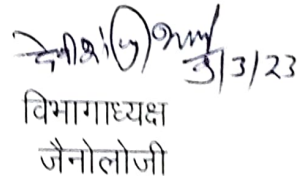 3/3/23
विभागाध्यक्ष
जैनोलोजी